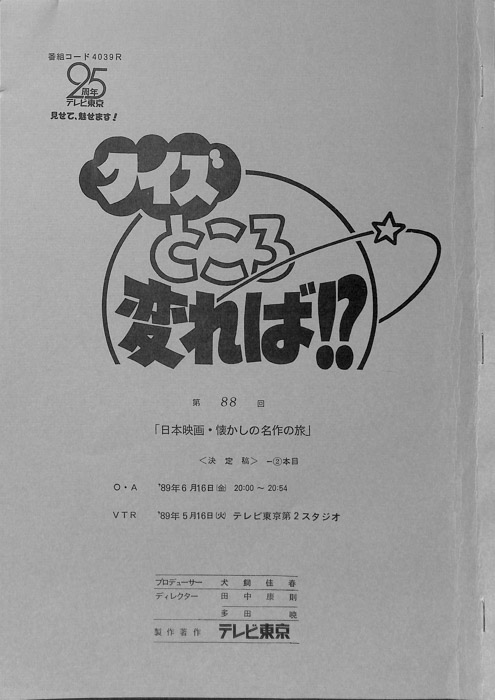 番組コード4039R
25
周年
テレビ東京
見せて、魅せます!
クイズ
ところ
変れば!?
第 88 回
「日本映画・懐かしの名作の旅」
〈決定稿〉 ー②本目
O・A '89年6月16日(金) 20:00〜20:54
VTR '89年5月16日(火) テレビ東京第2スタジオ
プロデューサー 犬飼佳春
ディレクター 田中康則
多田暁
製作著作 テレビ東京